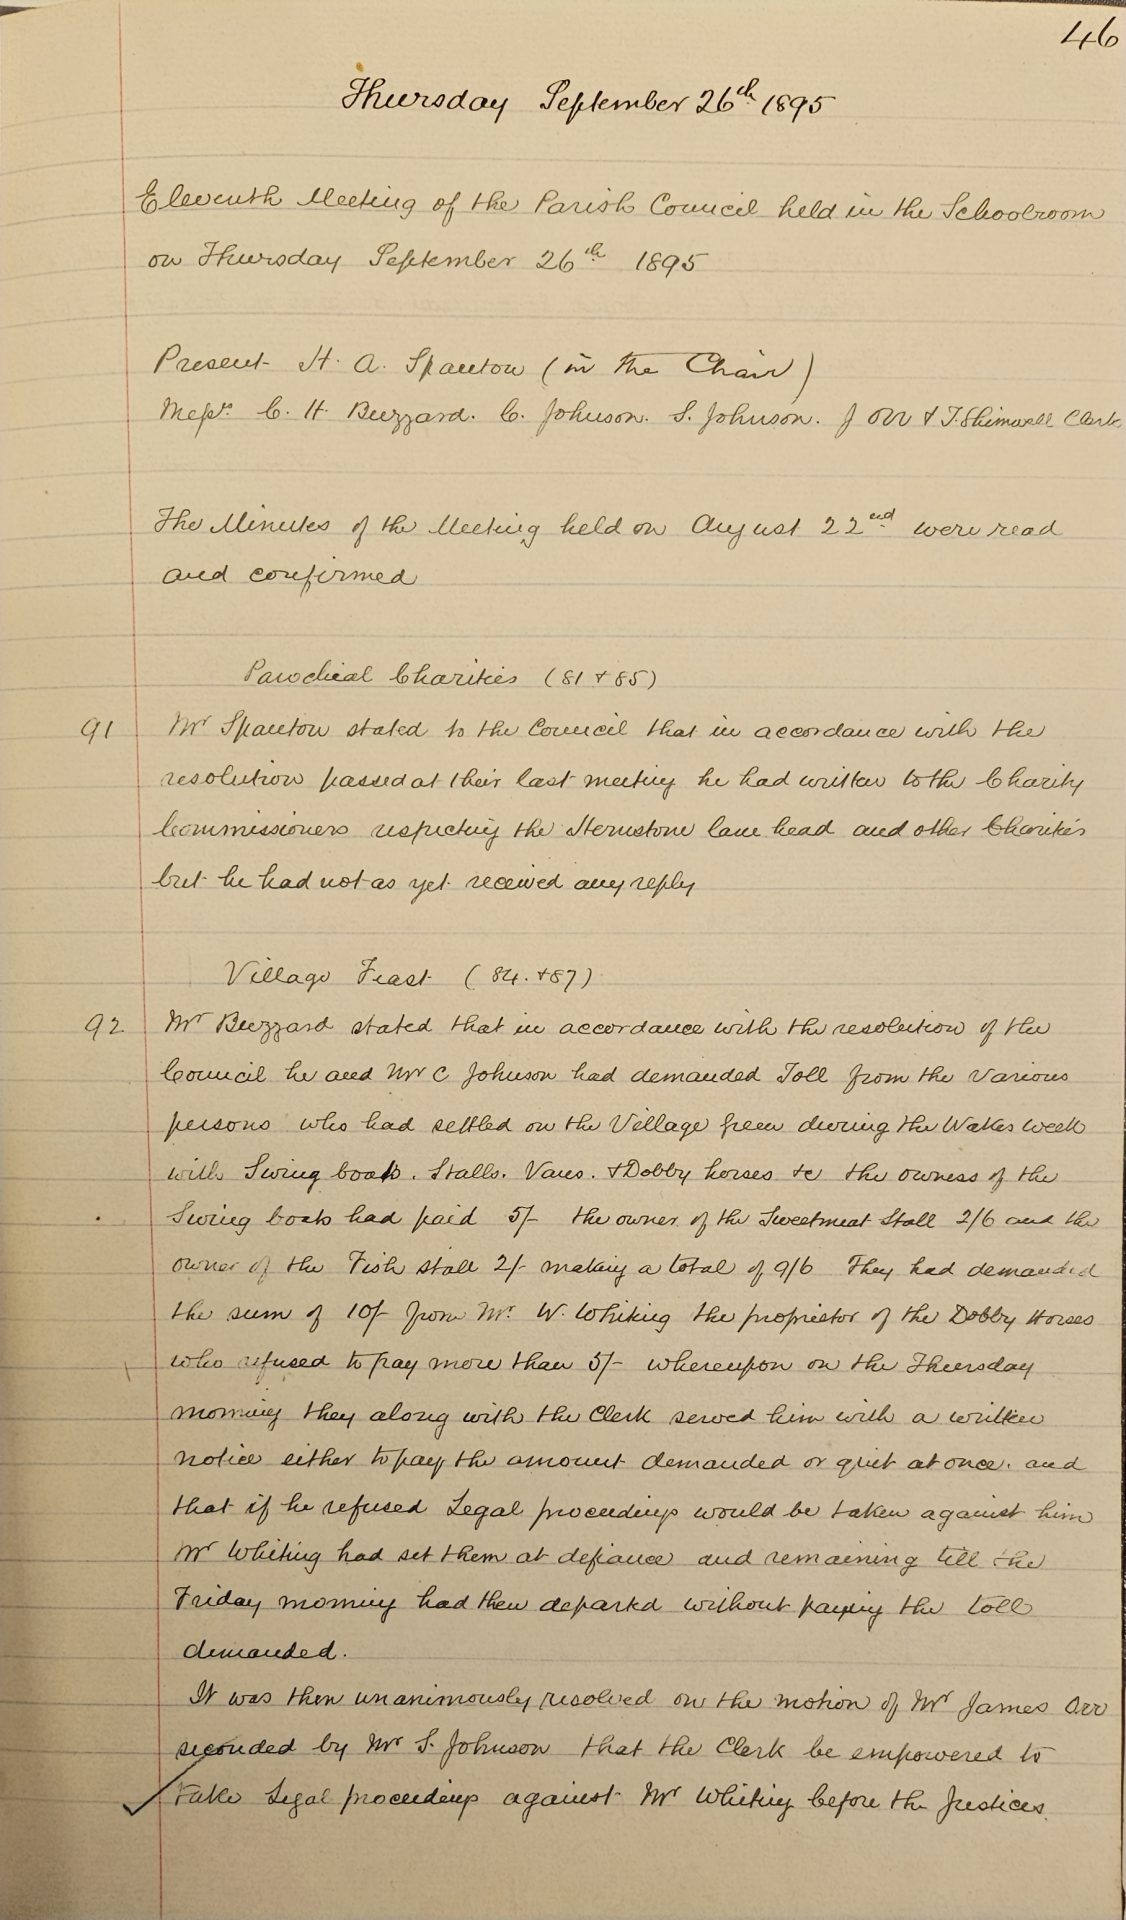 46
Thursday September 26th 1895
Eleventh Meeting of the Parish Council held in the Schoolroom
on Thursday September 26th 1895
Present H. A. Spanton (in the Chair)
Messrs C. H. Buzzard. C. Johnson. S. Johnson. J Orr & T. Shimwell Clerk
The Minutes of the Meeting held on August 22nd were read
and confirmed
Parochial Charities (81 & 85)
91 Mr Spanton stated to the Council that in accordance with the
resolution passed at their last meeting he had written to the Charity
Commissioners respecting the Hernstone lane head and other Charities
but he had not as yet received any reply
Village Feast (84. & 87)
92 Mr Buzzard stated that in accordance with the resolution of the
Council he and Mr C Johnson had demanded Toll from the various
persons who had settled on the Village Green during the Wakes week
with Swing boats. Stalls. Vans. & Dobby horses &c the owness of the
Swing boats had paid 5/- the owner of the Sweetmeat Stall 2/6 and the
owner of the Fish stall 2/- making a total of 9/6 They had demanded
the sum of 10/- from Mr. W. Whiting the proprietor of the Dobby Horses
who refused to pay more than 5/- whereupon on the Thursday
morning they along with the Clerk served him with a written
notice either to pay the amount demanded or quit at once. and
that if he refused Legal proceedings would be taken against him
Mr Whiting had set them at defiance and remaining till the
Friday morning had then departed without paying the toll
demanded.
It was then unanimously resolved on the motion of Mr James Orr
seconded by Mr S. Johnson that the Clerk be empowered to
take Legal proceedings against Mr Whiting before the Justices.